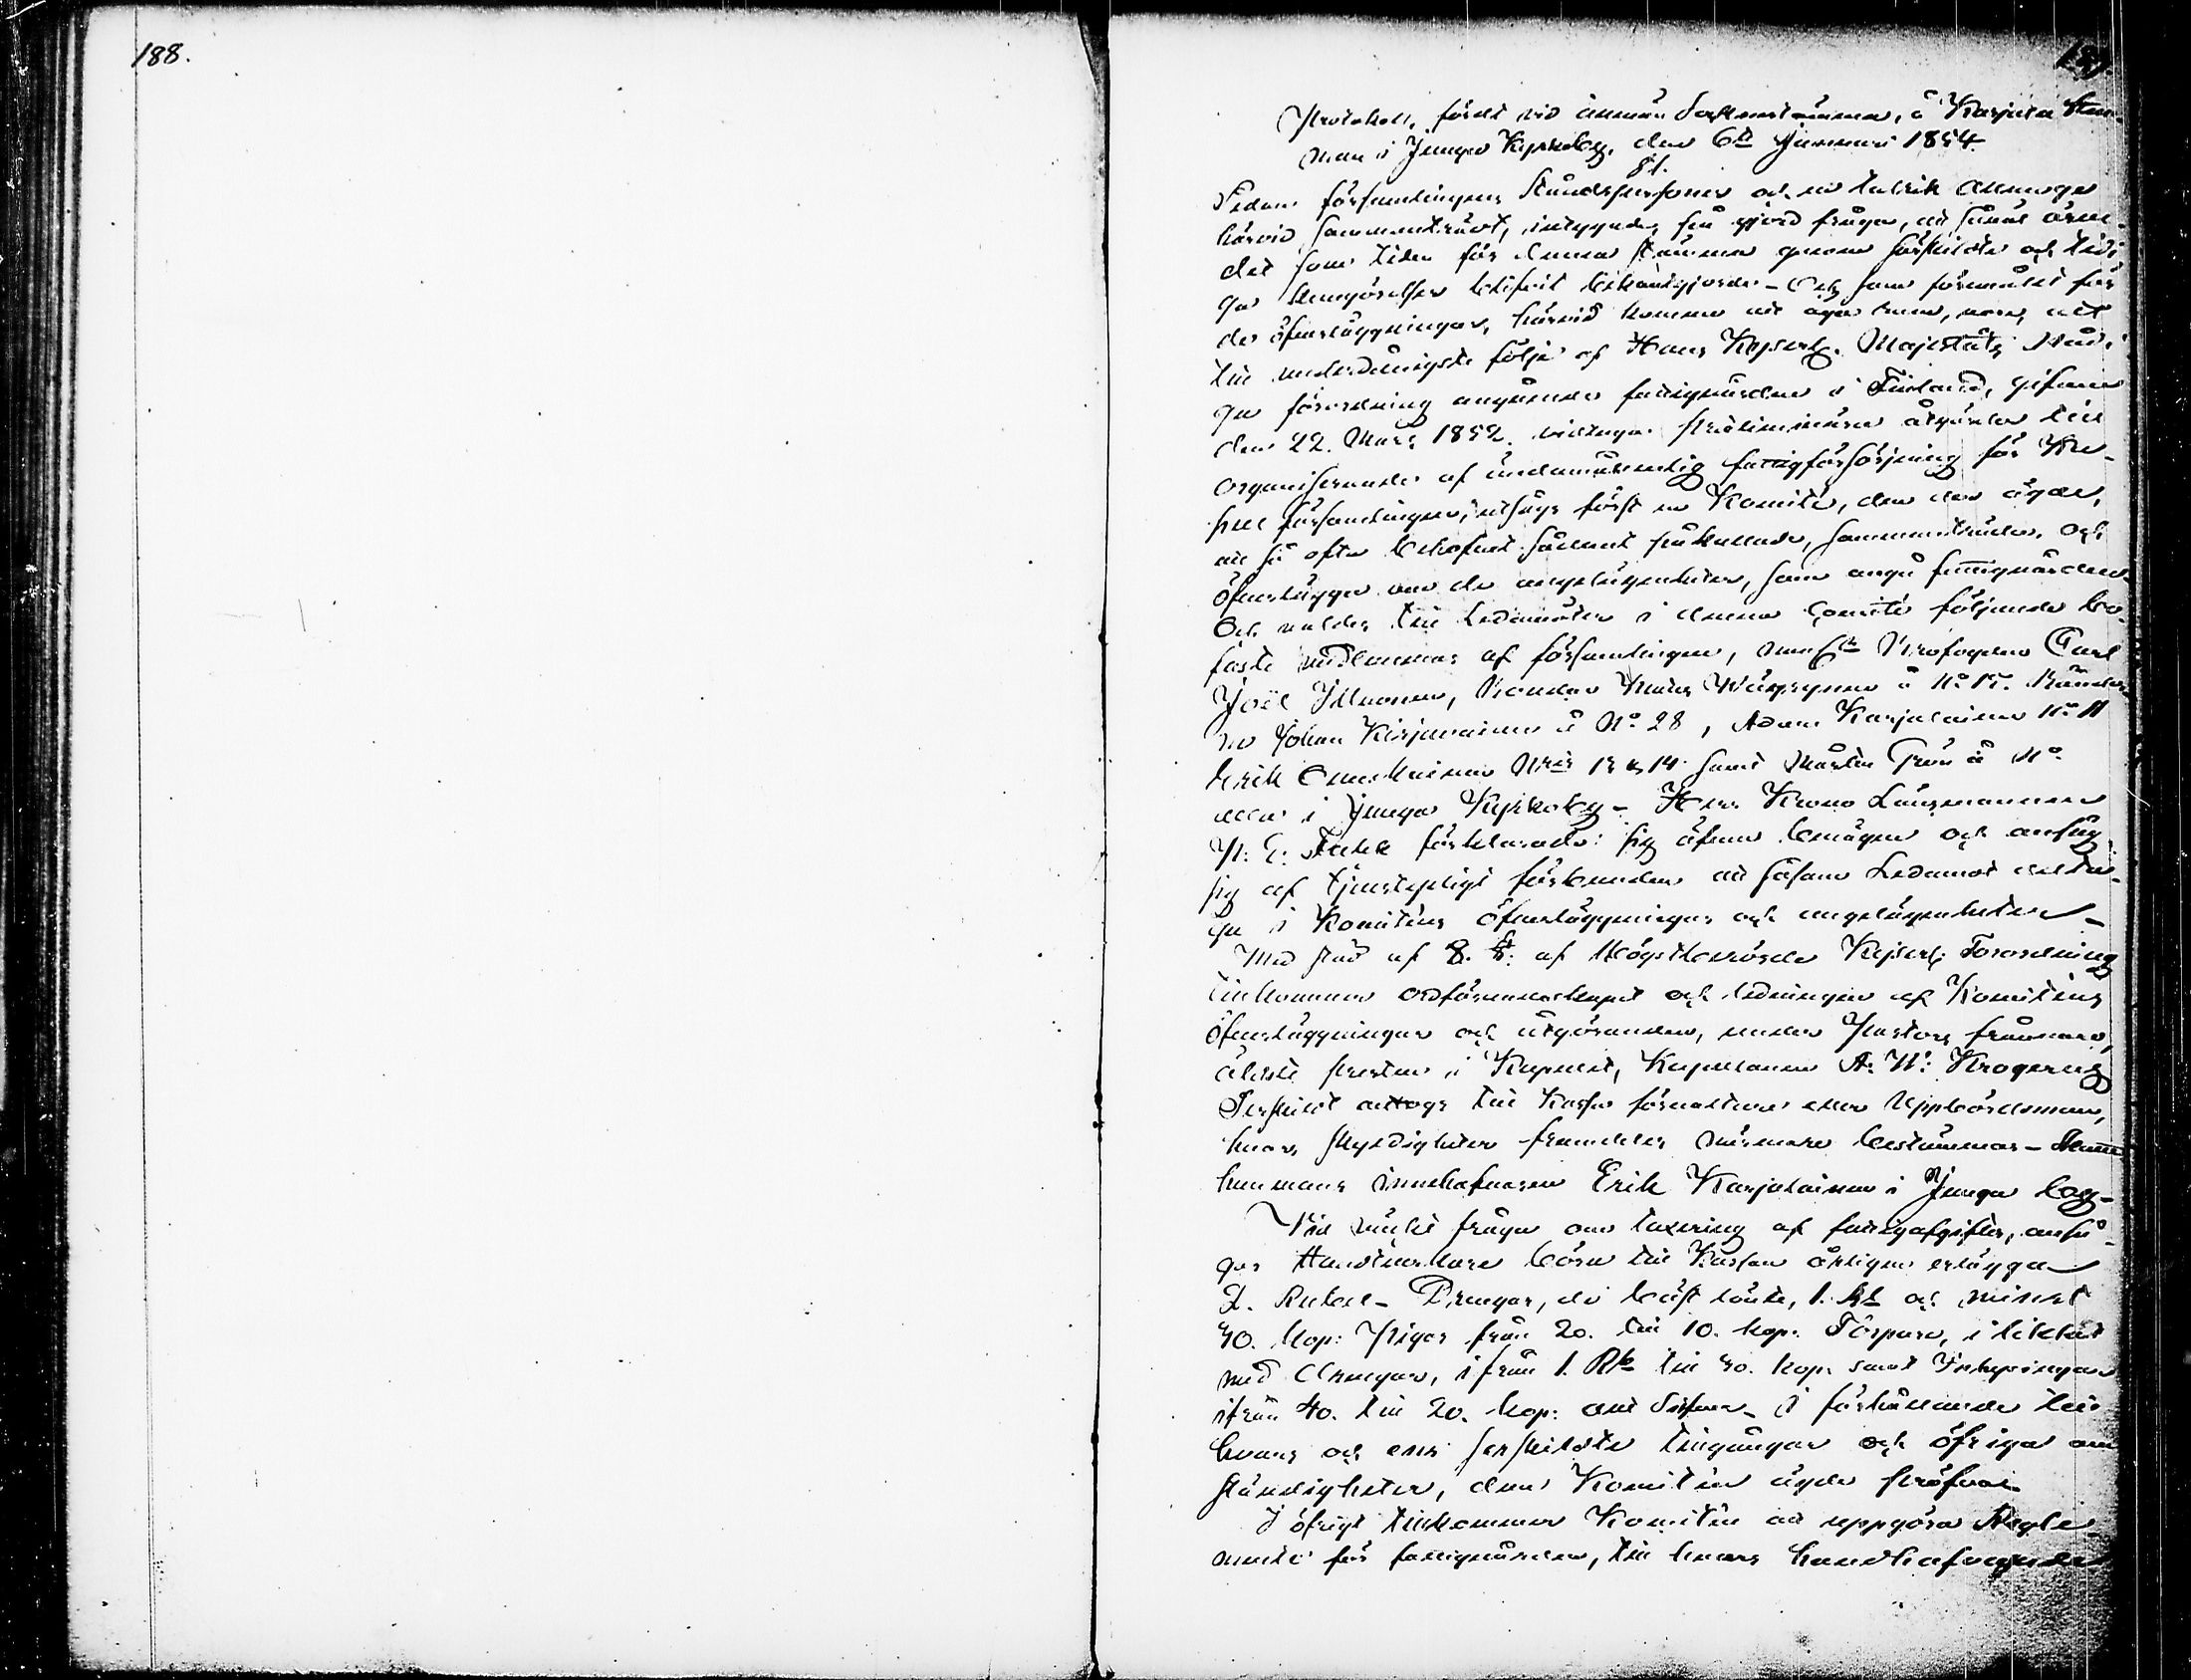 188.
189.
Protokoll, fördt vid allmän Sockenstämma, å Karjula Hem-
man i Jdenga Kyrkoby, den 6te Januari 1854.
§1.
Sedan församlingens Ståndspersoner och en talrik Allmoge
härvid sammanträdt, intygades på gjord fråga, att såväl ären-
det som tiden för denna stämma genom särskilde och tidi-
ga kungörelser blifvit bekantgjorde - Och som föremålet för
de öfverläggningar, härvid komme att äga rum, vore, att
till underdånigste följe af Hans Kejserl. Majestäts Nådi-
ga förordning angående fattigvården i Finland, gifven
den 22. Mars 1852. vidtaga preliminära åtgärder till
organiserande af ändamålsenlig fattigförsörjning för Ka-
pell församlingen, utsågs först en Komité, den der ägde,
att så ofta behofvet sådant påkallade, sammanträda, och
öfverlägga om de angelägenheter, som angå fattigvården.
Och valdes till Ledamöter i denna Comité följande bo-
faste medlemmar af församlingen, Carl
Joël Bonden å No 15. Bönder-
ne Johan å No 28, Adam Karjalainen No 11
Erik Nris 13 & 14. samt Mårten å No
alla i Kyrkoby - Herr Krono Länsmannen
förklarade sig äfven benägen och ansåg
sig af tjenstepligt förbunden att såsom Ledamot delta-
ga i Komiténs öfverläggningar och angelägenheter -
Med stöd af 8. §. af Högstberörde Kejserl. Förordning
tillkommer ordförandeskapet och ledningen af Komiténs
öfverläggningar och åtgöranden, under Pastors frånvaro,
äldste presten i Kapellet, Kapellanen A. W. Krogerus
Serskildt antogs till Kassa förvaltare eller Uppbördsman,
hvars skyldigheter framdeles närmare bestämmas - Hem-
mans innehafvaren Erik Karjalainen i by -
Vid väckt fråga om taxering af fattigafgifter, anså-
gos Handtverkare böra till Kassan årligen erlägga
2. Rubel - Drengar, de bäst lönte, 1. Rbl och minst
50. Kop: Pigor från 20. till 10. kop. Torpare, i likhet
med Drengar, ifrån 1. Rbl till 50. kop. samt Inhysingar
ifrån 40. till 20. kop: - i förhållande till
hvars och ens serskildte tillgångar och öfriga om-
ständigheter, dem Komitén ägde pröfva.
I öfrigt tillkommer Komitén att uppgöra Regle-
mente för fattigvården, till hvars handhafvande